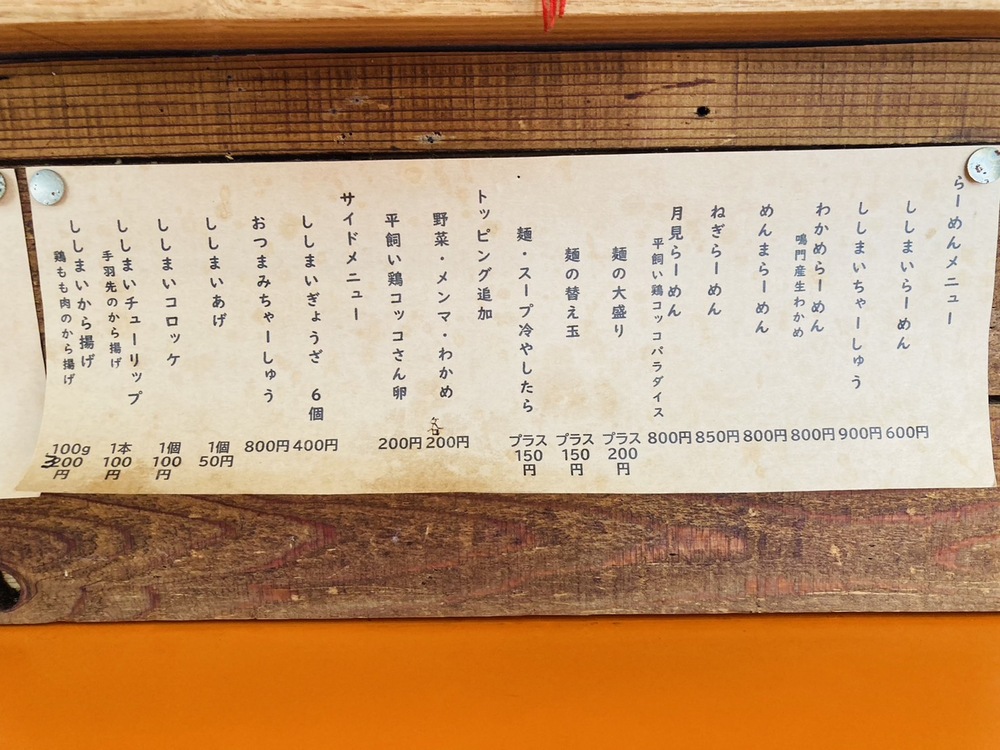 らーめんメニュー
ししまいらーめん 600円
ししまいちゃーしゅう 900円
わかめらーめん 800円
鳴門産生わかめ
めんまらーめん 800円
ねぎらーめん 850円
月見らーめん 800円
平飼い鶏コッコパラダイス
麺の大盛り プラス200円
麺の替え玉 プラス150円
麺・スープ冷やしたら プラス150円
トッピング追加
野菜・メンマ・わかめ 各200円
平飼い鶏コッコさん卵 200円
サイドメニュー
ししまいぎょうざ 6個 400円
おつまみちゃーしゅう 800円
ししまいあげ 1個50円
ししまいコロッケ 1個100円
ししまいチューリップ 1本100円
手羽先のから揚げ
ししまいから揚げ 100g300円
鶏もも肉のから揚げ